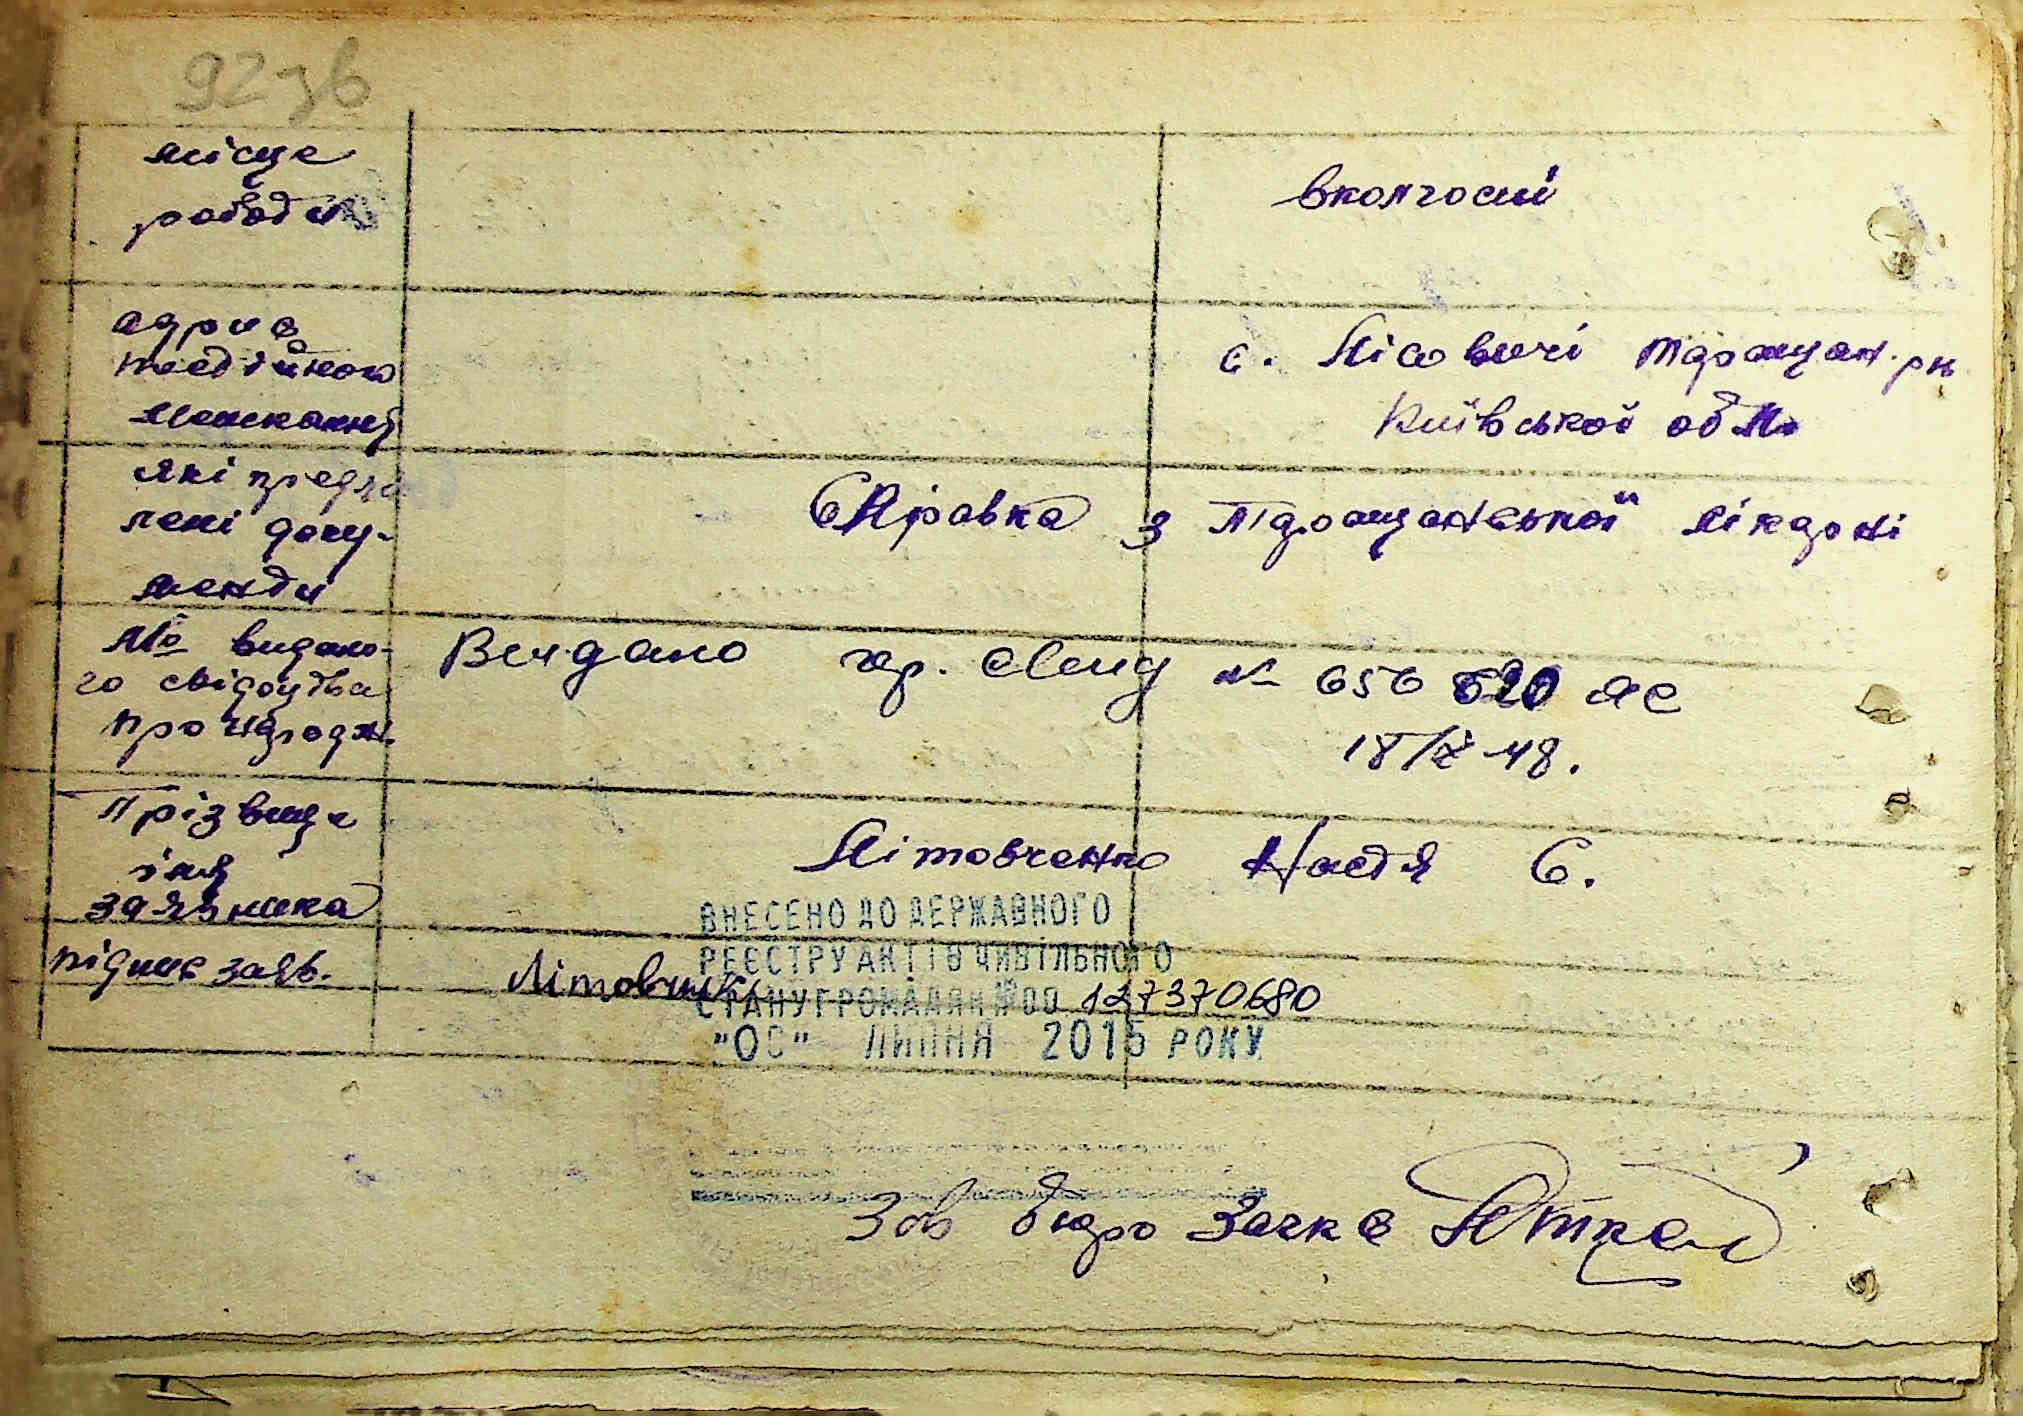 92зв
місце
роботи
вколгоспі
адрис
постійного
мешкання
с. Лісовичі Таращан. рн
Київської обл.
які предяв
лені доку-
менти
Справка з Таращанської лікарні
№ видано-
го свідоцтва
про народж.
Видано гр. свид № 656820 ЯЄ
18/X 48.
Прізвище
імя
заявника
Літовченко Настя Є.
ВНЕСЕНО ДО ДЕРЖАВНОГО
РЕЄСТРУ АКТІВ ЦИВІЛЬНОГО
підпис заяв.
Літовченко
СТАНУ ГРОМАДЯН №00 127370680
" " ЛИПНЯ 2015 РОКУ
Зав бюро Загса